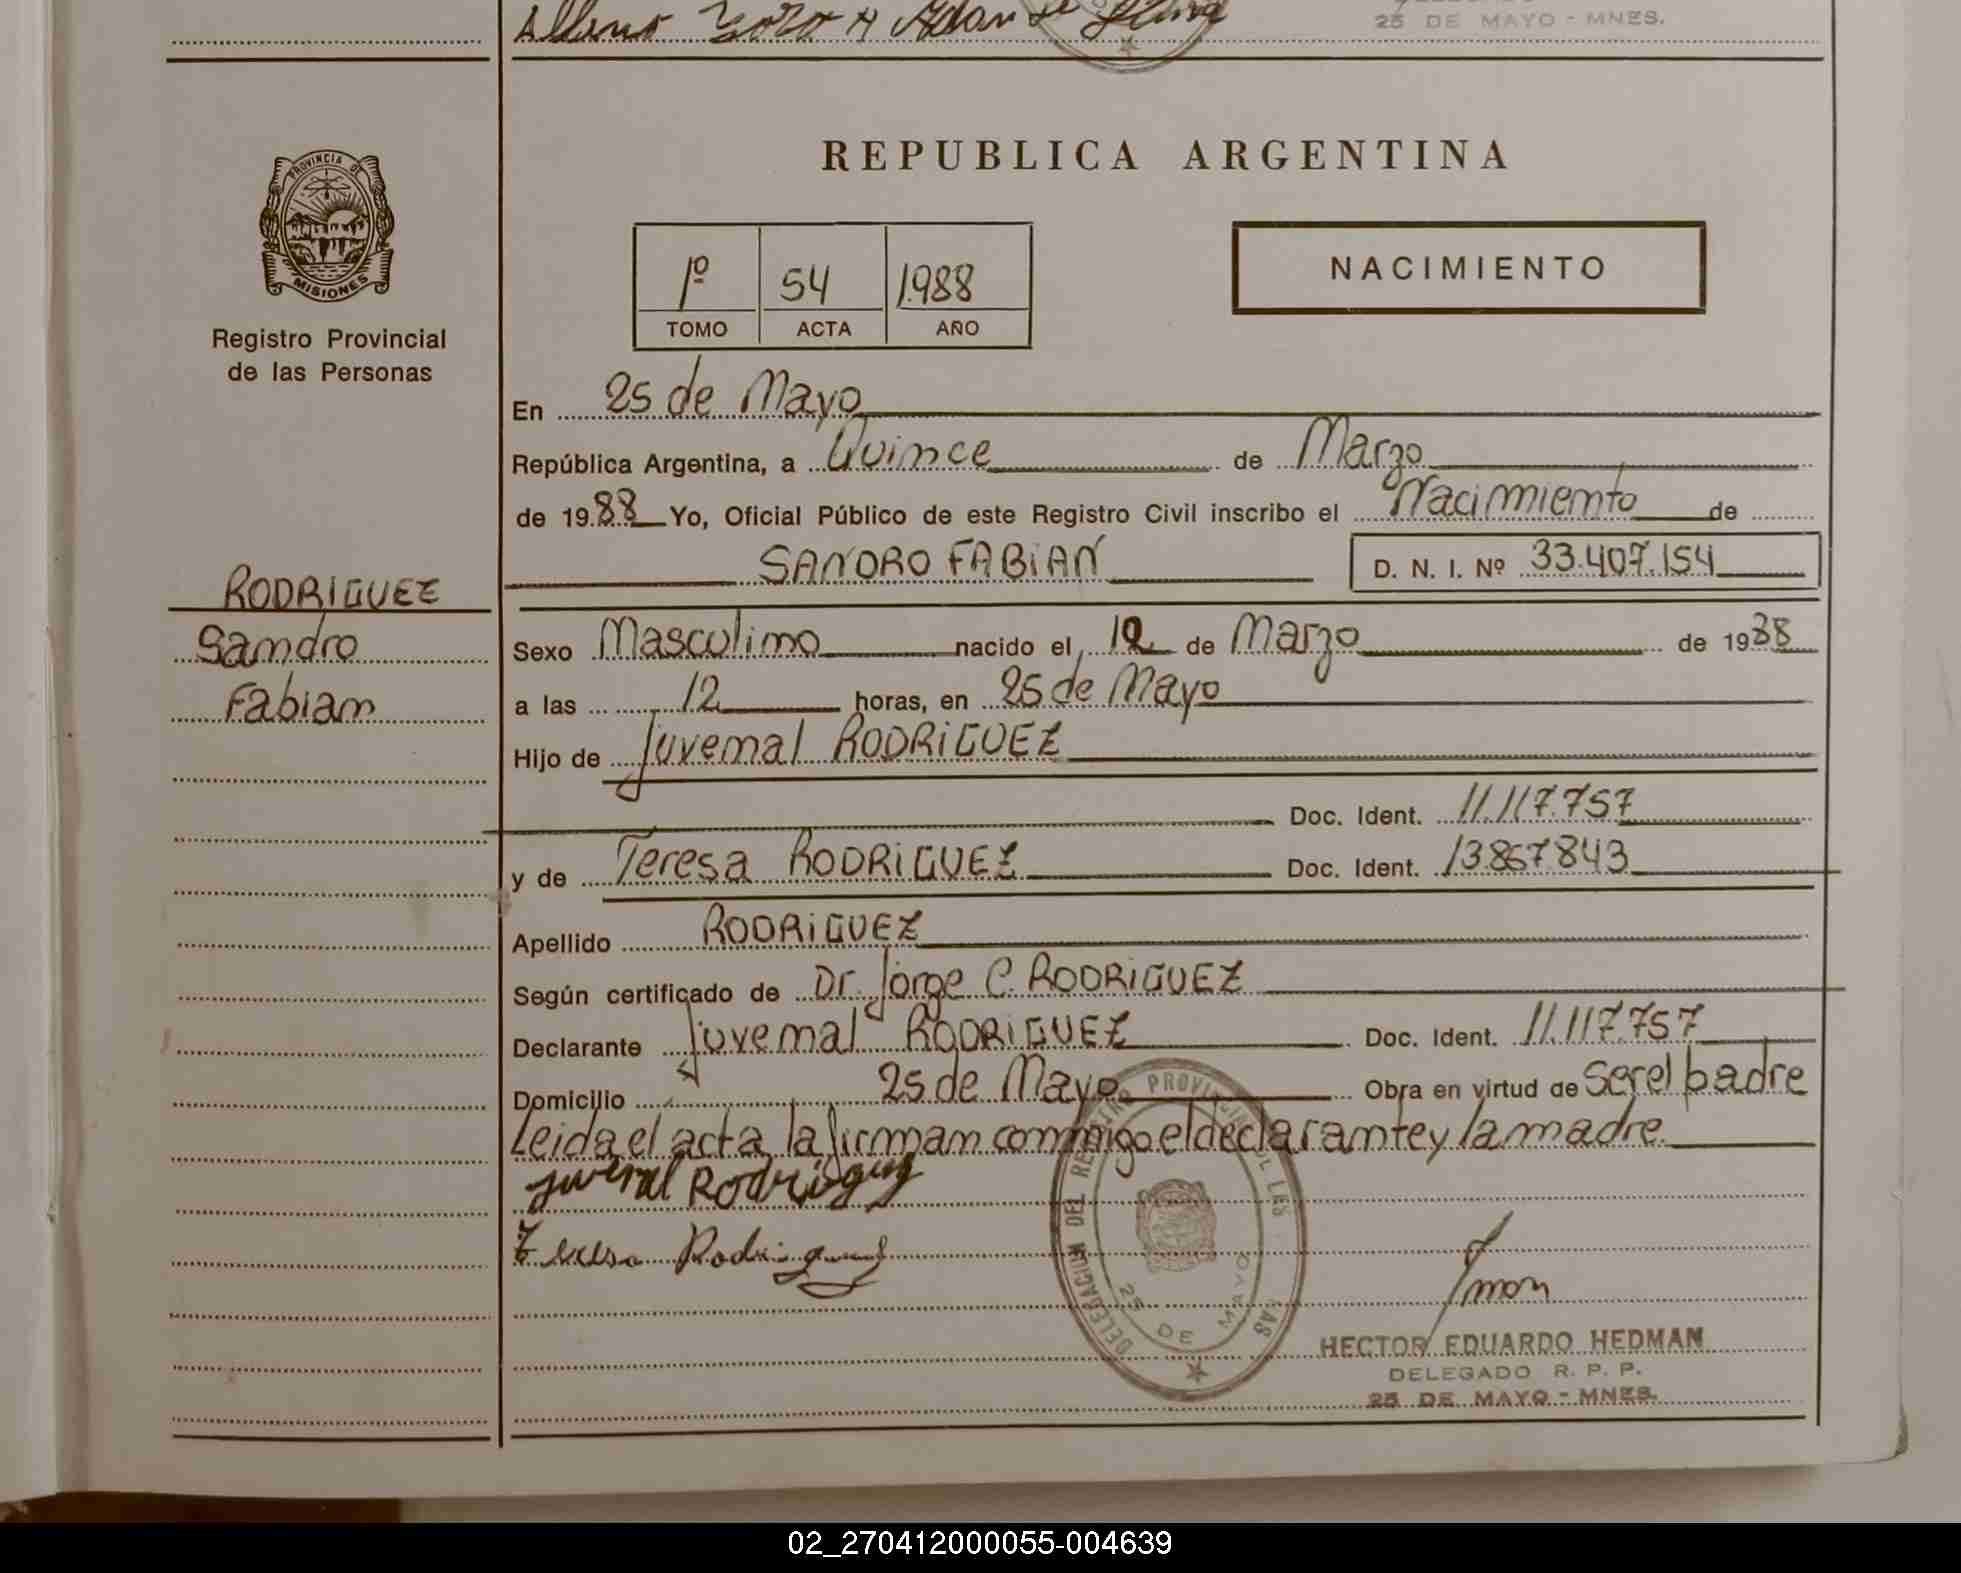 25 DE MAYO - MNES.
PROVINCIA DE
MISIONES
Registro Provincial
de las Personas
RODRIGUEZ
Sandro
Fabian
REPUBLICA ARGENTINA
1º 54 1988
TOMO ACTA AÑO
NACIMIENTO
En 25 de Mayo
República Argentina, a Quince de Marzo
de 1988 Yo, Oficial Público de este Registro Civil inscribo el Nacimiento de
SANDRO FABIAN D. N. I. Nº 33.407.154
Sexo Masculino nacido el 12 de Marzo de 1988
a las 12 horas, en 25 de Mayo
Hijo de Juvenal RODRIGUEZ
Doc. Ident. 11.117.757
y de Teresa RODRIGUEZ Doc. Ident. 13867843
Apellido RODRIGUEZ
Según certificado de Dr. Jorge C. RODRIGUEZ
Declarante Juvenal RODRIGUEZ Doc. Ident. 11.117.757
Domicilio 25 de Mayo Obra en virtud de Ser el padre
Leida el acta la firman conmigo el declarante y la madre.
juvenal Rodriguez
Teresa Rodriguez
DELEGACION DEL REGISTRO PROVINCIAL DE LAS
25 DE MAYO
HECTOR EDUARDO HEDMAN
DELEGADO R. P. P.
25 DE MAYO - MNES.
02_270412000055-004639